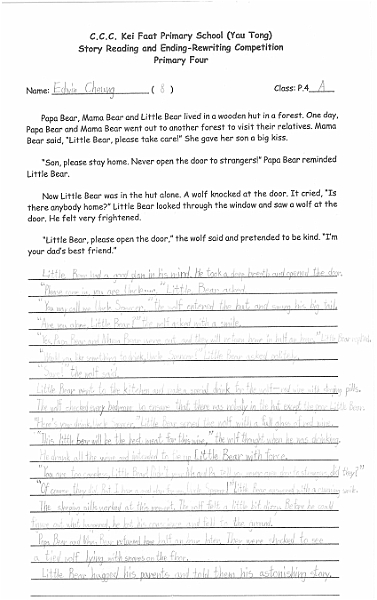 C.C.C. Kei Faat Primary School (Yau Tong)
Story Reading and Ending-Rewriting Competition
Primary Four
Name: Edvin Cheung ( 8 ) Class: P.4 A
Papa Bear, Mama Bear and Little Bear lived in a wooden hut in a forest. One day,
Papa Bear and Mama Bear went out to another forest to visit their relatives. Mama
Bear said, "Little Bear, please take care!" She gave her son a big kiss.
"Son, please stay home. Never open the door to strangers!" Papa Bear reminded
Little Bear.
Now Little Bear was in the hut alone. A wolf knocked at the door. It cried, "Is
there anybody home?" Little Bear looked through the window and saw a wolf at the
door. He felt very frightened.
"Little Bear, please open the door," the wolf said and pretended to be kind. "I'm
your dad's best friend."
Little Bear had a good plan in his mind. He took a deep breath and opened the door.
"Please come in, you are Uncle" Little Bear asked
"You may call me Uncle Spencer," the wolf entered the hut and swung his big tail.
"Are you alone, Little Bear?" the wolf asked with a smile.
"Yes, Papa Bear and Mama Bear were out, and they will return home in half an hour," Little Bear replied.
"Would you like something to drink, Uncle Spencer?" Little Bear asked politely.
"Sure!" the wolf said.
Little Bear went to the kitchen and made a special drink for the wolf—red wine with sleeping pills.
The wolf checked every bedroom to ensure that there was nobody in the hut except the Little Bear.
"Here's your drink, Uncle Spencer," Little Bear served the wolf with a full glass of red wine.
"This little bear will be the best meat for this wine," the wolf thought when he was drinking.
He drank all the wine and Little Bear with force.
"You are too careless, Little Bear! Didn't your Pa and Ma tell you never open door to strangers, did they?"
"Of course, they did. But I have a drink to, Uncle Spencer!" Little Bear answered with a smile.
The sleeping pills worked at this moment. The wolf felt a little bit dizzy. Before he could
figure out what happened, he lost his conscience and fell to the ground.
Papa Bear and Mama Bear returned home half an hour later. They were shocked to see
a tied wolf lying with on the floor.
Little Bear hugged his parents and told them his astonishing story.